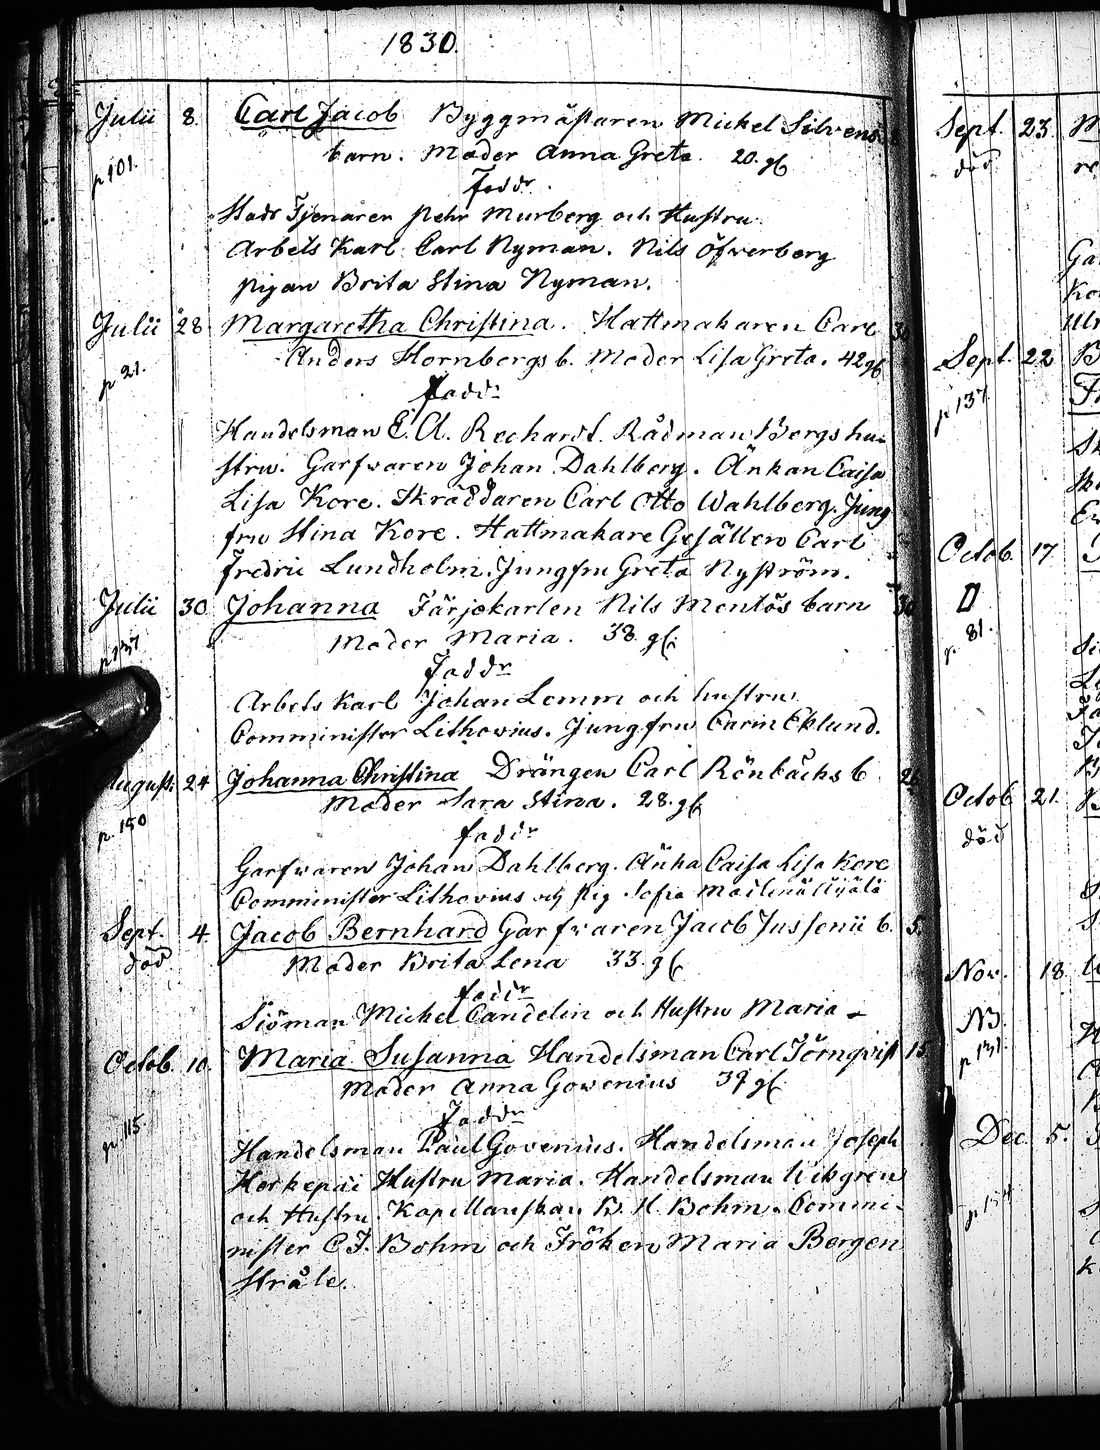 1830.
Julii 8. Carl Jacob Byggmästaren Michel Silvens
p 101. barn. Moder Anna Greta. 20. gl
Faddr.
Stads Tjenaren Pehr Murberg och Hustru.
Arbets Karl Carl Nyman. Nils Öfverberg
pigan Brita Stina Nyman.
Julii 28 Margaretha Christina. Hattmakaren Carl
p 21. Anders Hornbergs b. Moder Lisa Greta. 42 gl
Faddr
Handelsman E. A. Rechardt. Rådman Bergs hu-
stru. Garfvaren Johan Dahlberg. Änkan Caisa
Lisa Kore. Skräddaren Carl Otto Wahlberg. Jung
fru Stina Kore. Hattmakare Gesällen Carl
Fredric Lundholm. Jungfru Greta Nyström.
Julii 30 Johanna Färjekarlen Nils Mentös barn 30
p 137 Moder Maria. 38. gl.
Faddr
Arbets Karl Johan Lemm och hustru.
Comminister Lithovius. Jungfru Carin Eklund.
August: 24 Johanna Christina Drängen Carl Rönbächs b
p. 150 Moder Sara Stina. 28. gl
faddr
Garfvaren Johan Dahlberg. Änka Caisa Lisa Kore
Comminister Lithovius och Pig. Sofia
Sept. 4. Jacob Bernhard Garfvaren Jacob Jussenii b. 5.
död Moder Brita Lena 33. gl
faddr
Siöman Michel Candelin och Hustru Maria
Octob. 10. Maria Susanna Handelsman Carl Törnqvist 15
Moder Anna Govenius 39 gl.
p. 115. Faddr
Handelsman Paul Govenius. Handelsman Joseph
Hustru Maria. Handelsman Wikgren
och Hustru. Kapellanskan B. H. Bohm. Commi-
nister C. J. Bohm och Fröken Maria Bergen
stråle.
Sept. 23.
död
Sept. 22
p 137
Octob. 17.
p 81.
Octob 21.
död
Nov. 18
NB.
p 131.
Dec. 5.